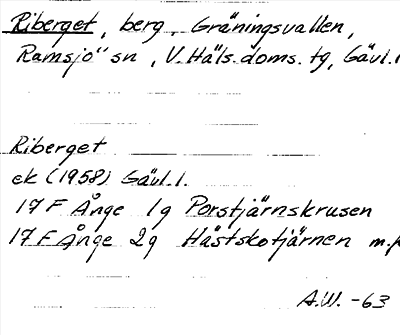 Riberget, berg, Gräningsvallen,
Ramsjö sn, V. Häls. doms. tg, Gävl. l
Riberget
ek (1958) Gävl. l.
17 F Ånge 1g Porstjärnskrusen
17 F Ånge 2g Hästskotjärnen m.fl
A.W. -63